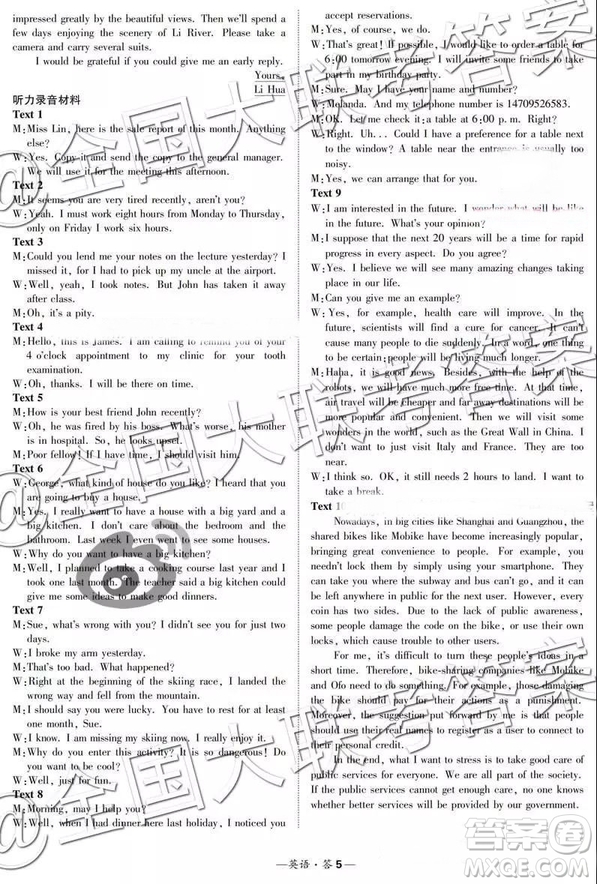 impressed greatly by the beautiful views. Then we'll spend a
few days enjoying the scenery of Li River. Please take a
camera and carry several suits.
I would be grateful if you could give an early reply.
Yours,
Li Hua
听力录音材料
Text 1
M: Miss Lin, here is the sale report of this month. Anything
else?
W: Yes. Copy it and send the copy to the general manager.
We will use it for the meeting this afternoon.
Text 2
M: It seems you are very tired recently, aren't you?
W: Yeah. I must work eight hours from Monday to Thursday,
only on Friday I work six hours.
Text 3
M: Could you lend me your notes on the lecture yesterday? I
missed it, for I had to pick up my uncle at the airport.
W: Well, yeah, I took notes. But John has taken it away
after class.
M: Oh, it's a pity.
Text 4
M: Hello, this is James. I am calling to remind you of your
4 o'clock appointment to my clinic for your tooth
examination.
W: Oh, thanks. I will be there on time.
Text 5
M: How is your best friend John recently?
W: Oh, he was fired by his boss. What's worse, his mother
is in hospital. So, he looks upset.
M: Poor fellow! If I have time, I should visit him.
Text 6
W: George, what kind of house do you like? I heard that you
are going to buy a house.
M: Yes. I really want to have a house with a big yard and a
big kitchen. I don't care about the bedroom and the
bathroom. Last week I even went to see some houses.
W: Why do you want to have a big kitchen?
M: Well, I planned to take a cooking course last year and I
took one last month. The teacher said a big kitchen could
give me some ideas to make good dinners.
Text 7
M: Sue, what's wrong with you? I didn't see you for just two
days.
W: I broke my arm yesterday.
M: That's too bad. What happened?
W: Right at the beginning of the skiing race, I was landed
wrong and fell off from the mountain.
M: I should say you were lucky. You have to get some rest.
W: I know. I am missing my skiing now. I really don't know
when I can go back to skiing.
M: Do you enjoy this activity? It is so dangerous.
W: Well, yeah. It is really wonderful. However, when I am
outdoors, I can go hiking or do some running. But today,
I can do nothing but sit inside and watch TV. What bad luck!
Text 8
M: Morning, may I help you?
W: Well, when I had dinner here yesterday, I found you could
accept reservations.
M: Yes, of course, we do.
W: That's great! If possible, I would like to order a table for
6:00 tomorrow evening. I will invite some friends to take
part in my birthday party.
M: Sure. May I have your name?
W: Melanda. And my telephone number is 14709526583.
M: OK. Let me check it: a table at 6:00 p. m. Right?
W: Right. Uh... Could I have a preference for a table next
to the window? A table near the entrance is usually too
noisy.
M: Yes, we can arrange that for you.
Text 9
W: I am interested in the future. I wonder what it will be like
in the future. What's your opinion?
M: I suppose that the next 20 years will be a time for rapid
progress in every aspect. Do you agree?
W: Yes. I believe we will see many amazing changes taking
place.
M: Can you give me an example?
W: Yes, for example, health care will improve. In the
future, scientists will find a cure for cancer. It can be
stopped from spreading to other parts. In a word, one thing
to be certain: people will be living much longer.
M: Haha, it is good news. Besides, with the help of the
robots, we will have more free time. At that time, air
travel will be cheaper and far away destinations will be
more popular and convenient. Even we will visit some
wonders in the world, such as the Great Wall in China. I
don't want to just visit Italy and France. And you?
W: I think so. OK, it still needs 2 hours to land. I want to
take a break.
Text 10
Nowadays, in big cities like Shanghai and Guangzhou, the
shared bikes like Mobike have become increasingly popular,
bringing great convenience to people. For example, you
needn't lock them by simply using your smartphone. They
can take you where the subway and bus can't go, but you
should leave it in public for the next user. However, every
coin has two sides. Due to the lack of public awareness,
some people damage the code on the bike, or even put it
into their own houses. As a result, they have caused
trouble to other users.
For me, it's difficult to turn these people's ideas in a
short time. Therefore, bike-sharing companies like Mobike
and Ofo need to do something. For example, anybody
damaging the bike should pay for their actions as a punishment.
Moreover, the suggestion put forward by me is that they
should use their real names to register as a user to connect with
their personal credit.
In the end, what I want to stress is to take good care of
public services for everyone. We are all part of the society.
If the public services cannot get enough care, no one knows
whether better services will be provided by our government.
—英语·答5—
@全国大联考答案
答案圈
MXQE.COM